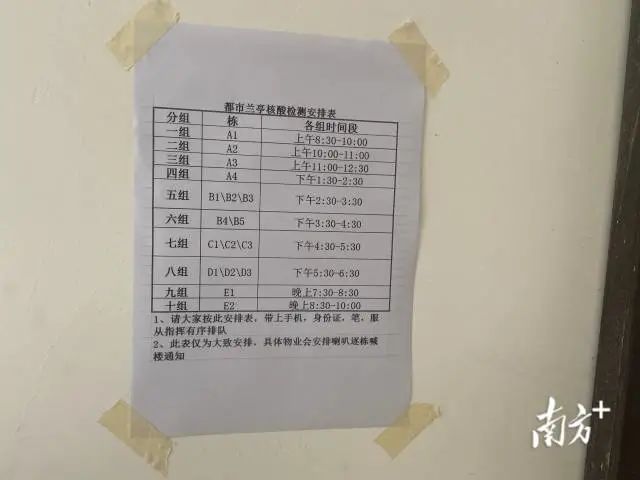 都市兰亭核酸检测安排表
分组 栋 各组时间段
一组 A1 上午8:30-10:00
二组 A2 上午10:00-11:00
三组 A3 上午11:00-12:30
四组 A4 下午1:30-2:30
五组 B1\B2\B3 下午2:30-3:30
六组 B4\B5 下午3:30-4:30
七组 C1\C2\C3 下午4:30-5:30
八组 D1\D2\D3 下午5:30-6:30
九组 E1 晚上7:30-8:30
十组 E2 晚上8:30-10:00
1、请大家按此安排表，带上手机，身份证，笔，服
从指挥有序排队
2、此表仅为大致安排，具体物业会安排喇叭逐栋喊
楼通知
南方+